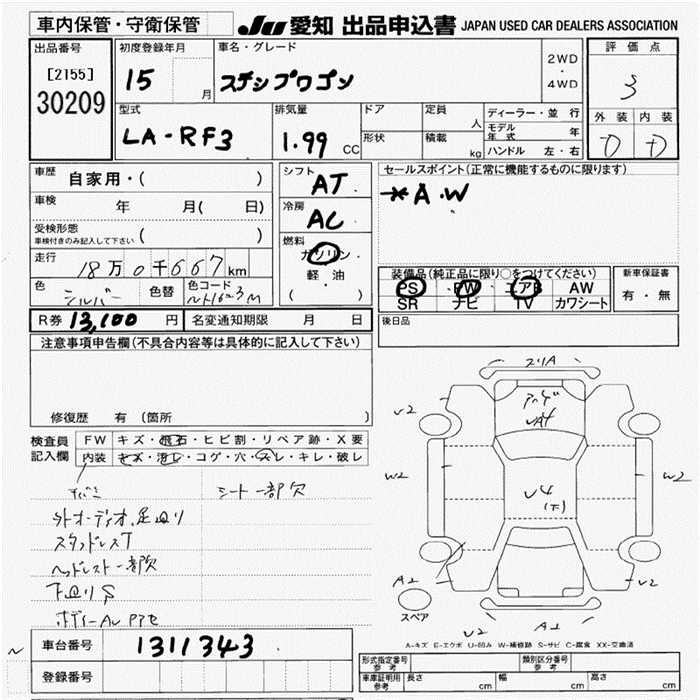 車内保管・守衛保管
JU 愛知 出品申込書 JAPAN USED CAR DEALERS ASSOCIATION
出品番号
[2155]
30209
初度登録年月
15 月
車名・グレード
ステップワゴン
2WD
・
4WD
評価点
3
外装 内装
D D
型式
LA-RF3
排気量
1.99 CC
ドア
形状
定員 人
積載 kg
ディーラー・並行
モデル年式 年
ハンドル 左・右
車歴 自家用・( )
車検 年 月( 日)
受検形態
車検付きのみ記入して下さい ( )
走行
18万0千667km
色 シルバー 色替 色コード
シフト
AT
冷房
AC
燃料
ガソリン
軽・油
( )
セールスポイント(正常に機能するものに限ります)
*A.W
装備品(純正品に限り○をつけてください)
PS PW エアB AW
SR ナビ TV カワシート
新車保証書
有・無
R券 13,100 円 名変通知期限 月 日
後日品
注意事項申告欄(不具合内容等は具体的に記入して下さい)
修復歴 有 (箇所
検査員
記入欄
FW キズ・飛石・ヒビ割・リペア跡・X要
内装 キズ・汚レ・コゲ・穴・スレ・キレ・破レ
シート一部欠
外オーディオ,足回り
スタッドレスT
ヘッドレスト一部欠
下回りS
車台番号 1311343
登録番号
スリA
U2
W2
W2
U4
(下)
A2
U2
スペア
U2
A2
A-キズ E-エクボ U-凹み W-補修跡 S-サビ C-腐食 XX-交換済
形式指定番号
参考
類別区分番号
参考
車庫証明用
参考
長さ cm 幅 cm 高さ cm